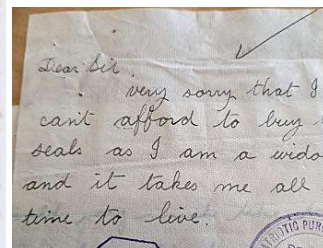 Dear Sir.
very sorry that I
can't afford to buy
seals as I am a
and it takes me all
time to live.